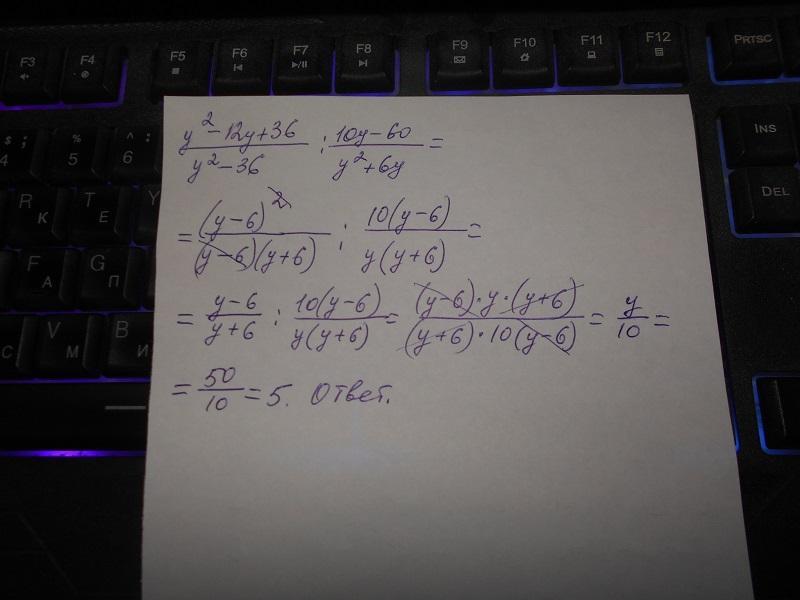 F3 F4 F5 F6 F7 F8 F9 F10 F11 F12 PRTSC
$ ; 4 % 5 ^ : 6 INS
R К T Е Y DEL
F А G П
С V М B И
y²-12y+36 / y²-36 : 10y-60 / y²+6y =
= (y-6)² / (y-6)(y+6) : 10(y-6) / y(y+6) =
= y-6 / y+6 : 10(y-6) / y(y+6) = (y-6)·y·(y+6) / (y+6)·10(y-6) = y / 10 =
= 50 / 10 = 5. Ответ.